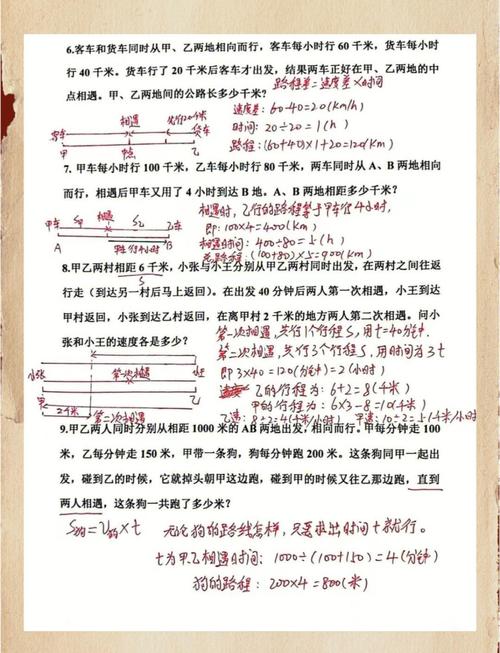 6.客车和货车同时从甲、乙两地相向而行，客车每小时行 60 千米，货车每小时
行 40 千米。货车行了 20 千米后客车才出发，结果两车正好在甲、乙两地的中
点相遇。甲、乙两地间的公路长多少千米？ 路程差=速度差×时间
速度差：60-40=20(km/h)
相遇 先行20千米
客车 货车
时间：20÷20=1(h)
甲 中点 乙
路程：(60+40)×1+20=120(km)
7. 甲车每小时行 100 千米，乙车每小时行 80 千米，两车同时从 A、B 两地相向
而行，相遇后甲车又用了 4 小时到达 B 地。A、B 两地相距多少千米？
相遇时，乙行的路程等于甲车行4小时，
甲车 S甲 相遇 S乙 乙车
即：100×4=400(km)
A 甲车行4小时 B
相遇时间：400÷80=5(h)
总路程：(100+80)×5=900(km)
8.甲乙两村相距 6 千米，小张与小王分别从甲乙两村同时出发，在两村之间往返
S
行走（到达另一村后马上返回）。在出发 40 分钟后两人第一次相遇，小王到达
甲村返回，小张到达乙村返回，在离甲村 2 千米的地方两人第二次相遇。问小
张和小王的速度各是多少？ 第一次相遇，共行1个行程S，用t=40分钟.
第二次相遇，共行3个行程S，用时间为3t
小张 第一次相遇 小王
即3×40=120(分钟)=2(小时)
甲 乙
乙的行程为：6+2=8(千米)
2千米 第二次相遇
甲的行程为：6×3-8=10(千米)
乙速：8÷2=4(千米/小时) 甲速：10÷2=5(千米/小时)
9.甲乙两人同时分别从相距 1000 米的 AB 两地出发，相向而行。甲每分钟走 100
米，乙每分钟走 150 米，甲带一条狗，狗每分钟跑 200 米。这条狗同甲一起出
发，碰到乙的时候，它就掉头朝甲这边跑，碰到甲的时候又往乙那边跑，直到
两人相遇，这条狗一共跑了多少米？
S狗=V狗×t 无论狗的路线怎样，只要求出时间t就行。
t为甲乙相遇时间：1000÷(100+150)=4(分钟)
狗的路程：200×4=800(米)